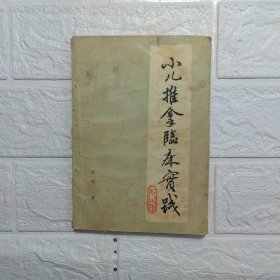 小儿推拿臨床實践